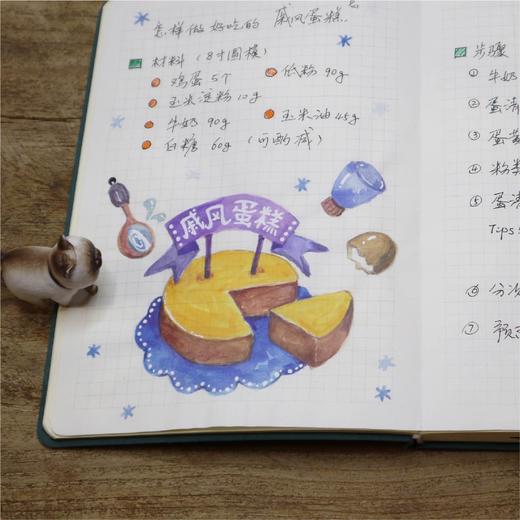 怎样做好吃的 戚风蛋糕
材料（8寸圆模）
鸡蛋 5个
低粉 90g
玉米淀粉 10g
牛奶 90g
玉米油 45g
白糖 60g（可酌减）
戚风蛋糕
步骤
① 牛奶
② 蛋清
③ 蛋黄
④ 粉类
⑤ 蛋清
Tips
⑥ 分次
⑦ 预